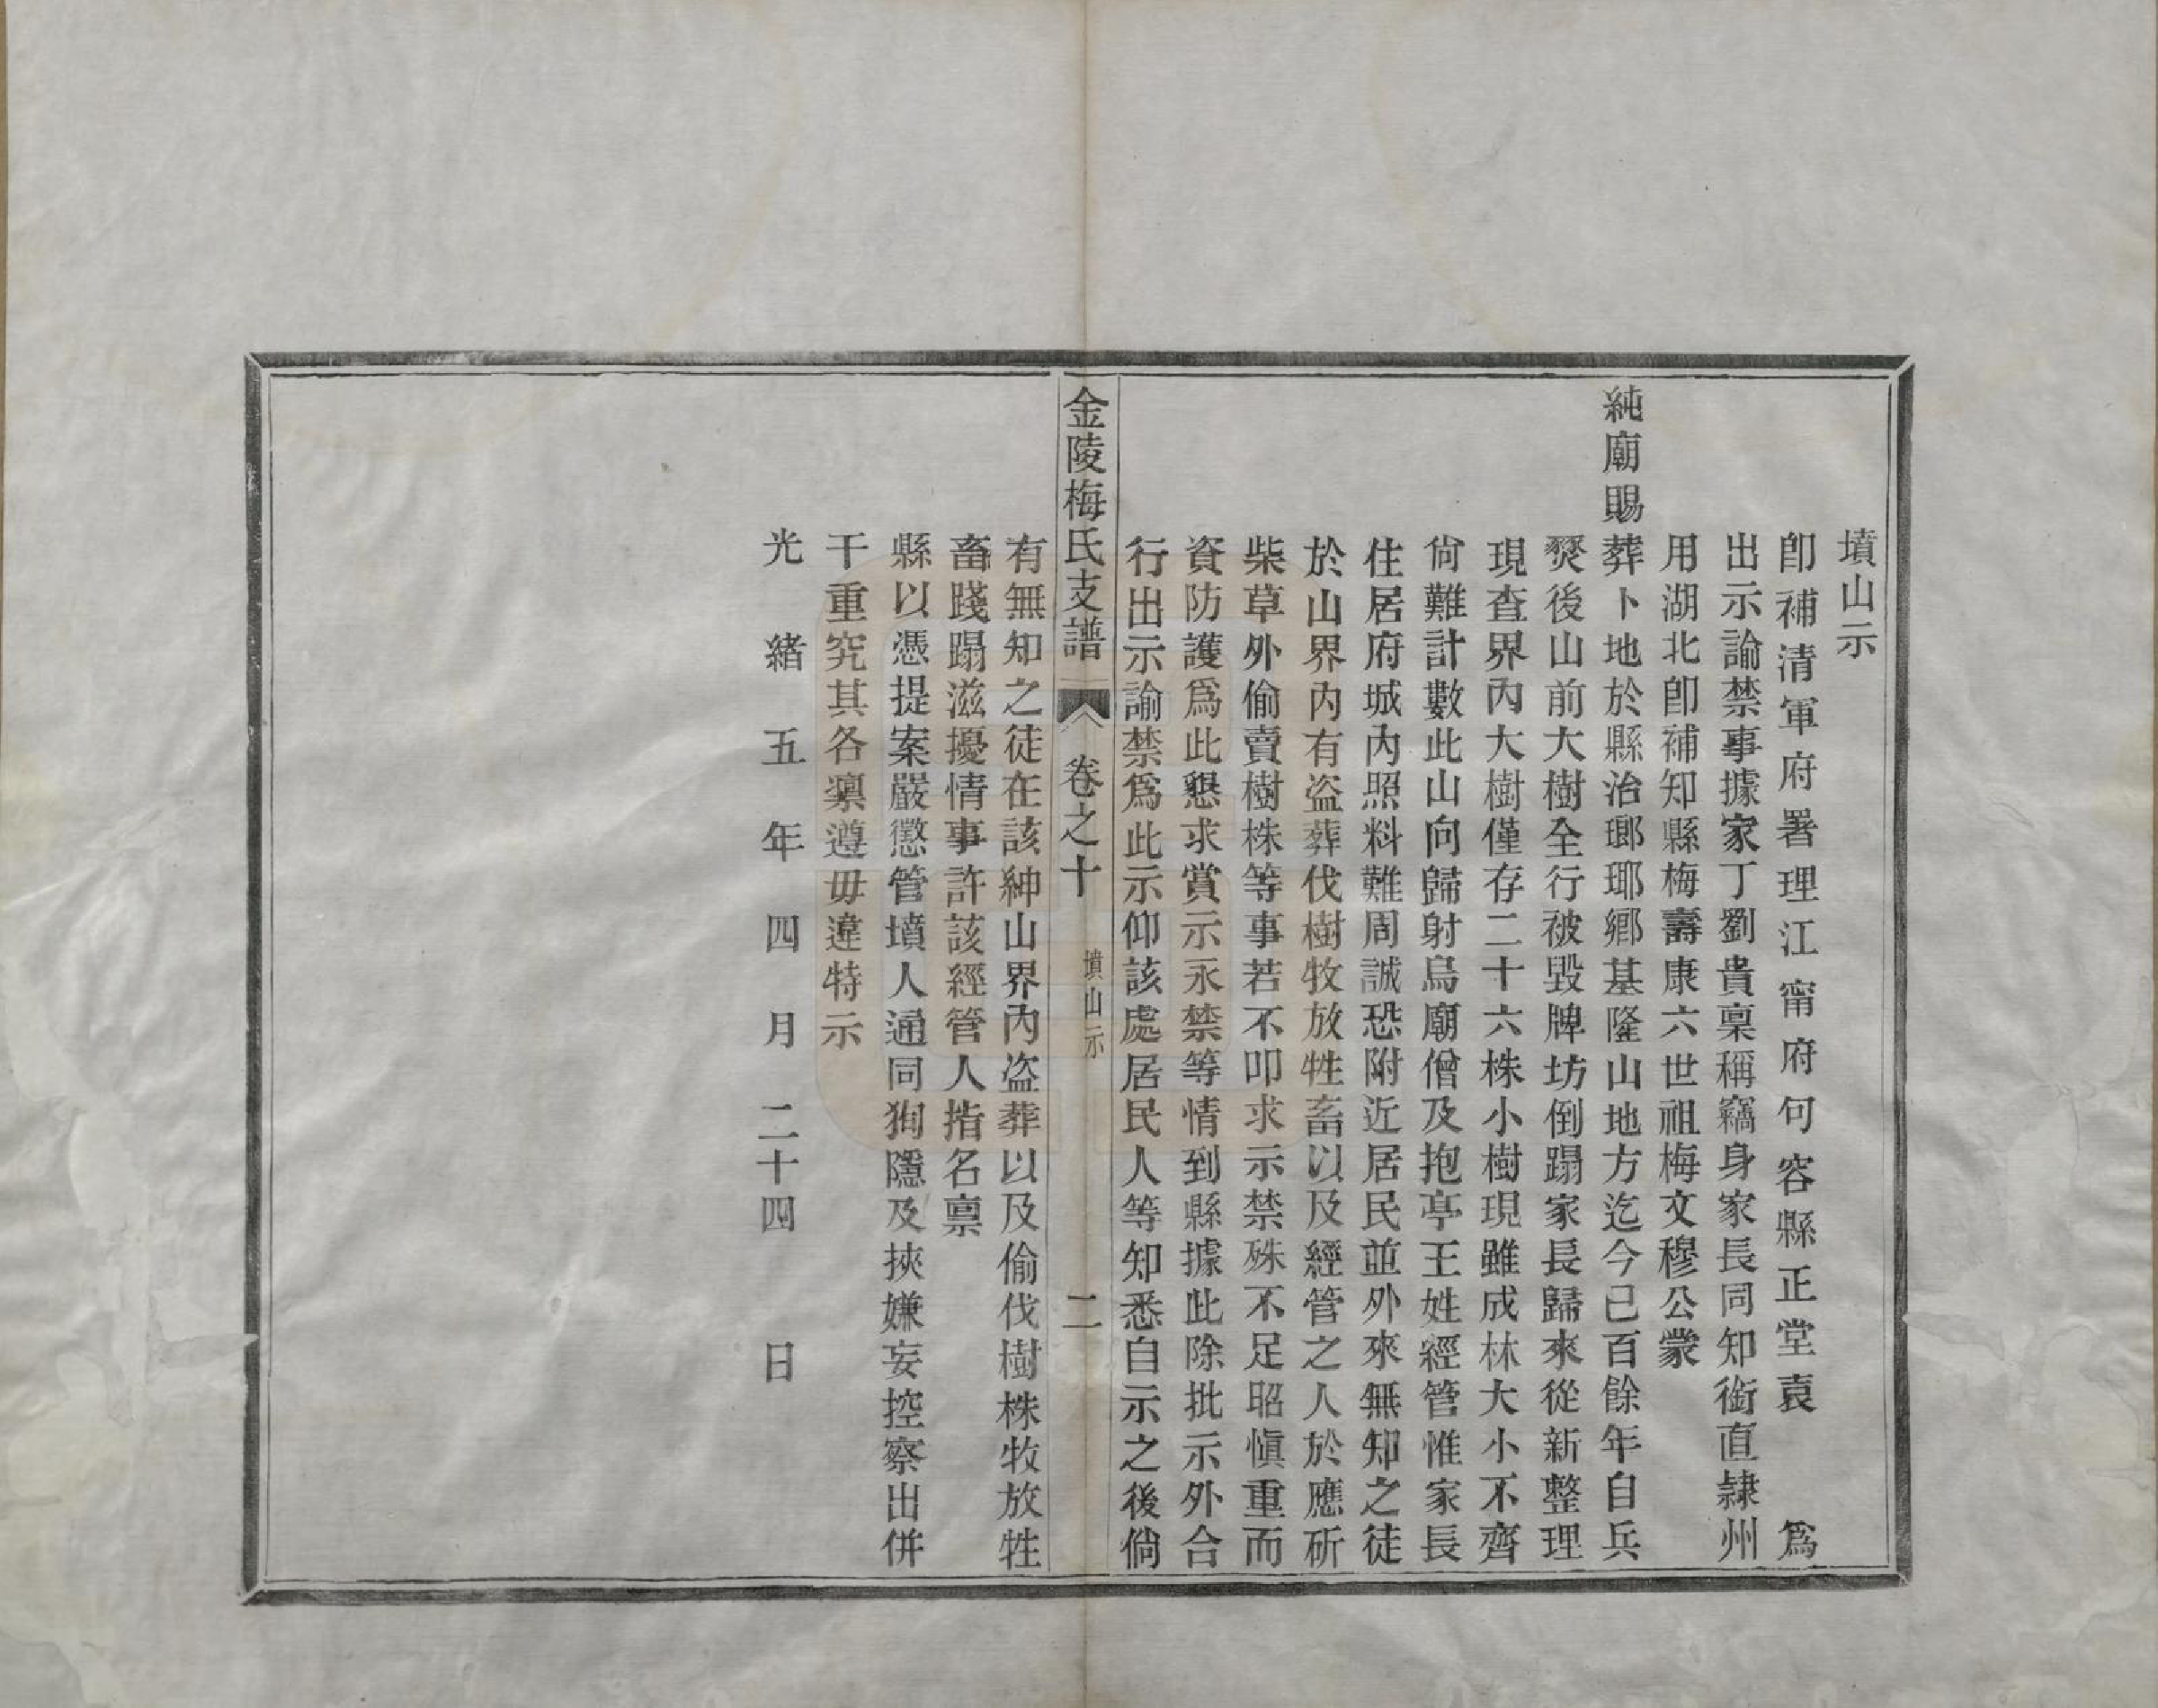 墳山示
卽補清軍府署理江甯府句容縣正堂袁　爲
出示諭禁事據家丁劉貴稟稱竊身家長同知銜直隸州
用湖北卽補知縣梅壽康六世祖梅文穆公蒙
純廟賜葬卜地於縣治瑯琊鄉基隆山地方迄今已百餘年自兵
燹後山前大樹全行被毀牌坊倒蹋家長歸來從新整理
現查界內大樹僅存二十六株小樹現雖成林大小不齊
尙難計數此山向歸射烏廟僧及抱亭王姓經管惟家長
住居府城內照料難周誠恐附近居民並外來無知之徒
於山界內有盜葬伐樹牧放牲畜以及經管之人於應斫
柴草外偷賣樹株等事若不叩求示禁殊不足昭愼重而
資防護爲此懇求賞示永禁等情到縣據此除批示外合
行出示諭禁爲此示仰該處居民人等知悉自示之後倘
金陵梅氏支譜　卷之十　墳山示　二
有無知之徒在該紳山界內盜葬以及偷伐樹株牧放牲
畜踐蹋滋擾情事許該經管人指名稟
縣以憑提案嚴懲管墳人通同狥隱及挾嫌妄控察出併
干重究其各凛遵毋違特示
光緒五年四月二十四日